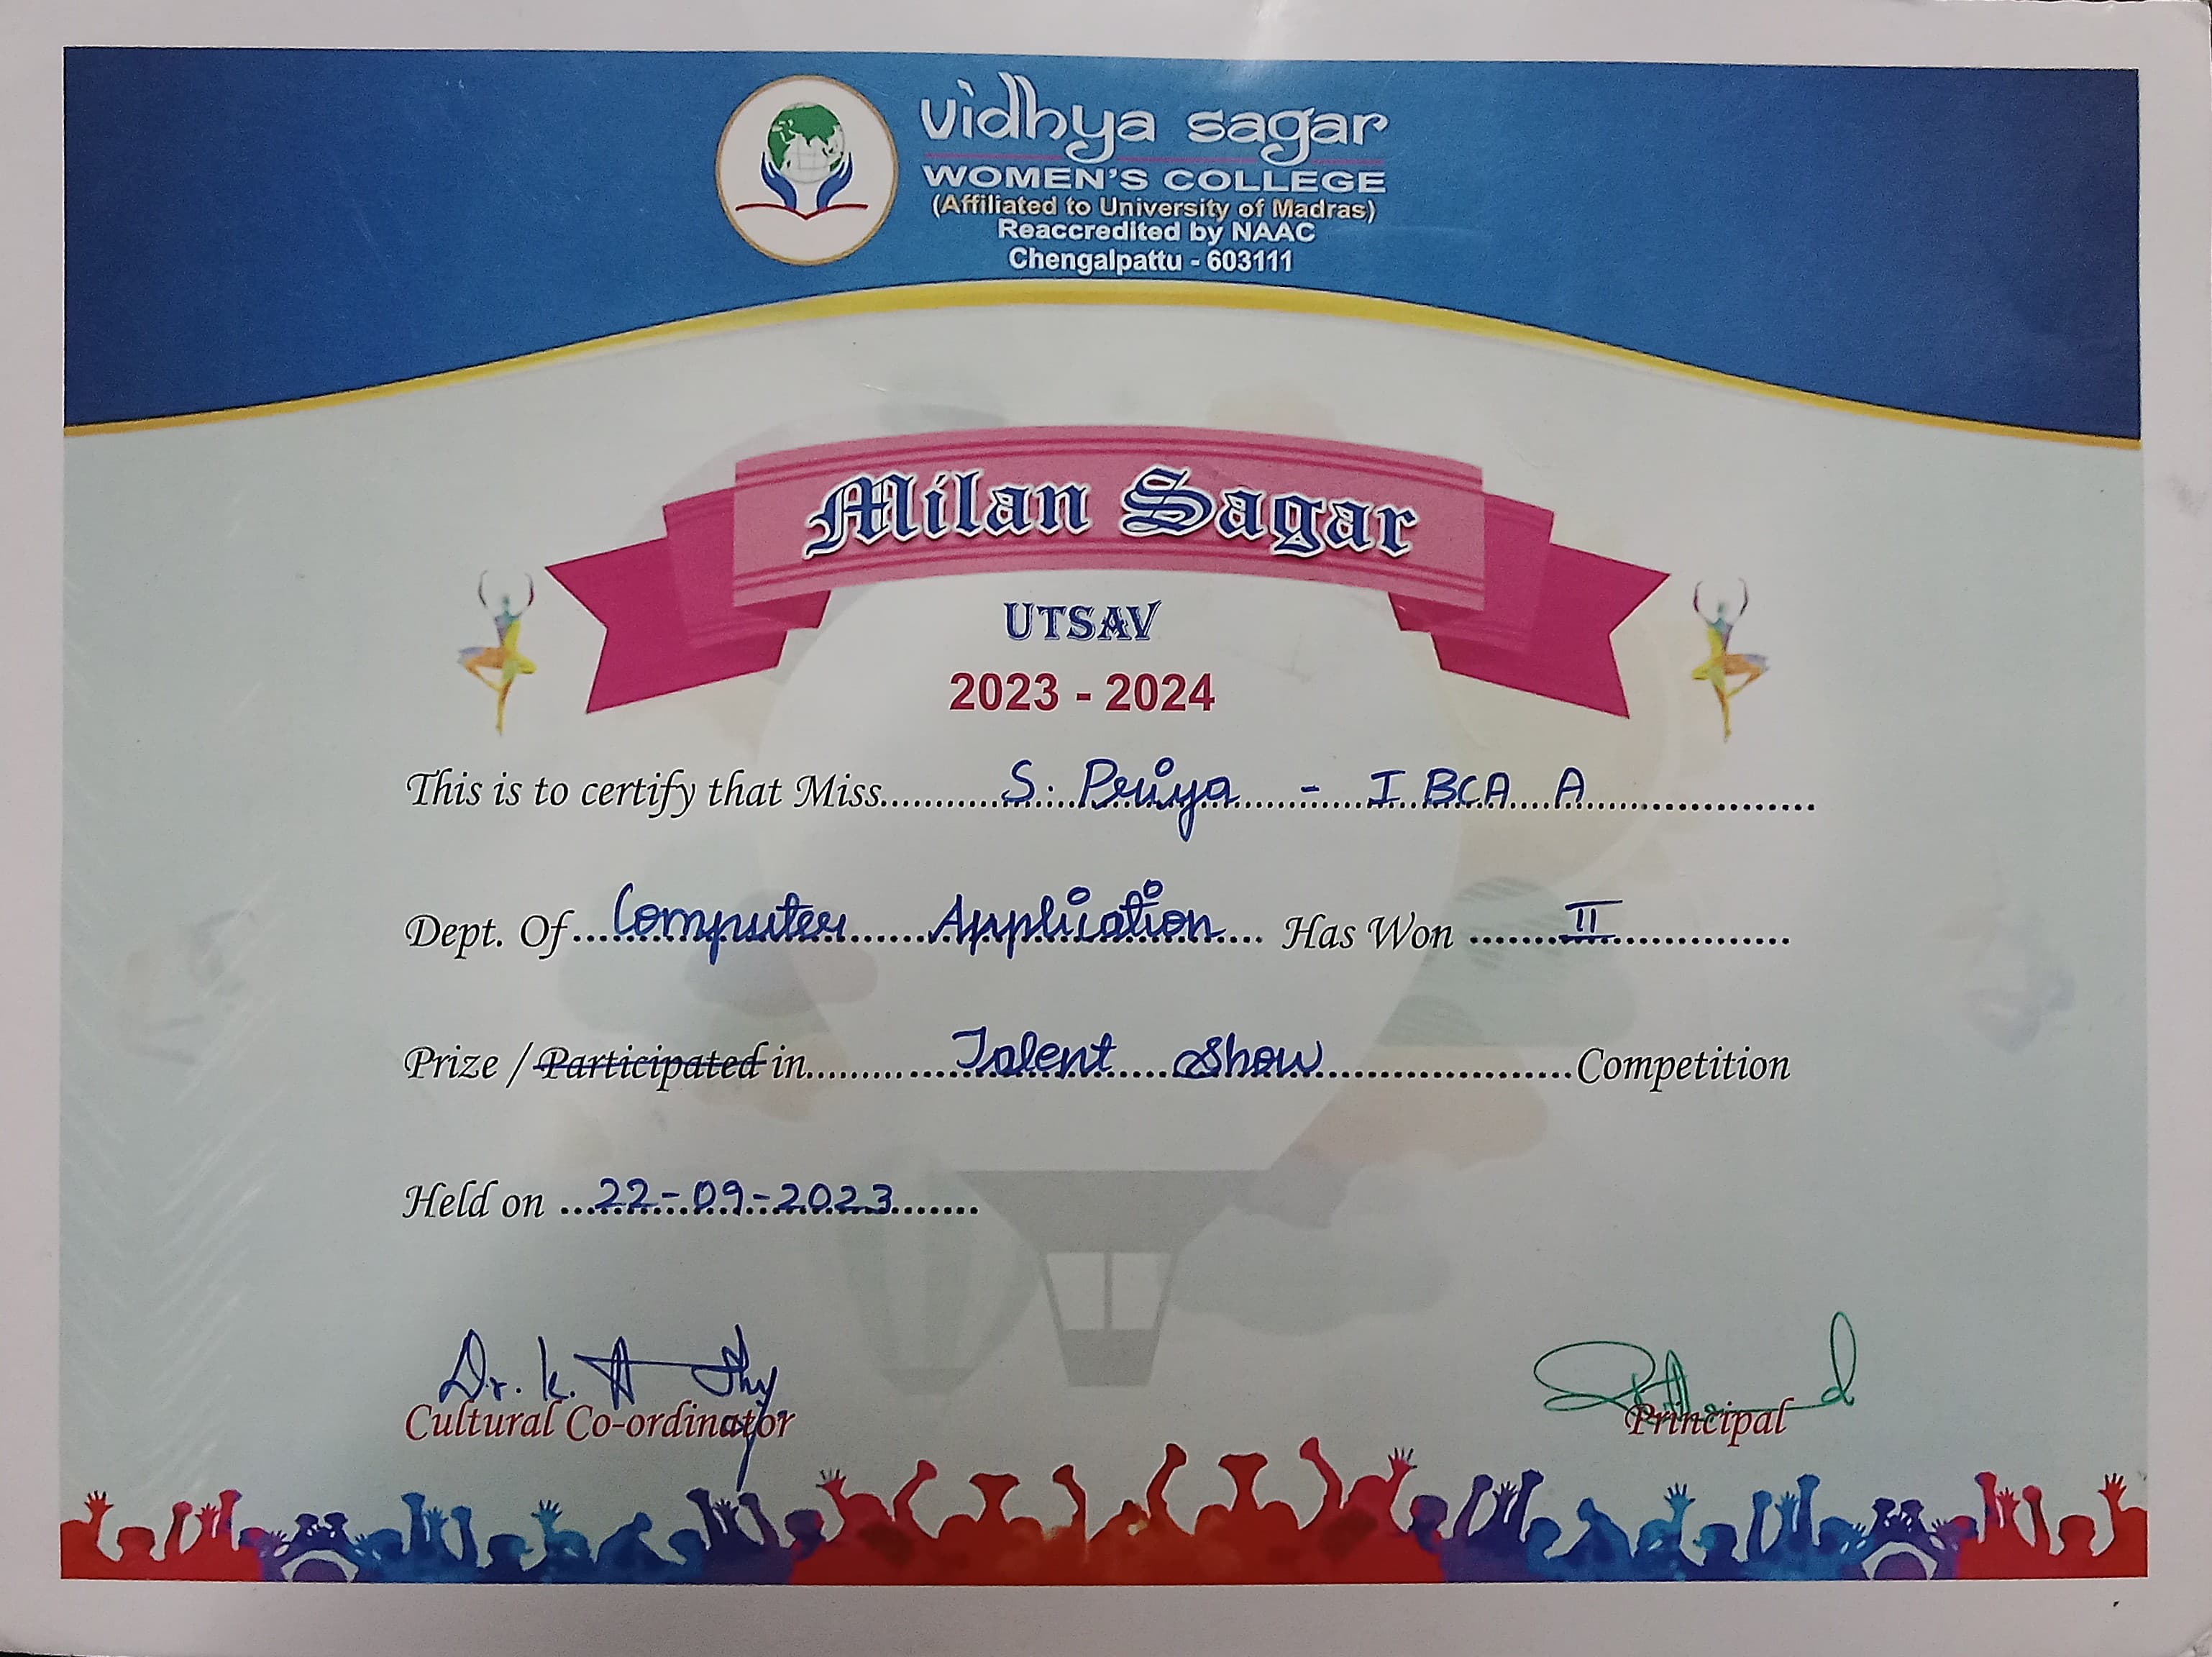 vidhya sagar
WOMEN'S COLLEGE
(Affiliated to University of Madras)
Reaccredited by NAAC
Chengalpattu - 603111
Milan Sagar
UTSAV
2023 - 2024
This is to certify that Miss..........S. Priya - I BCA A..........
Dept. Of...Computer Application... Has Won ......II......
Prize / Participated in..........Talent Show..........Competition
Held on ...22-09-2023.......
Dr. K.
Cultural Co-ordinator
Principal